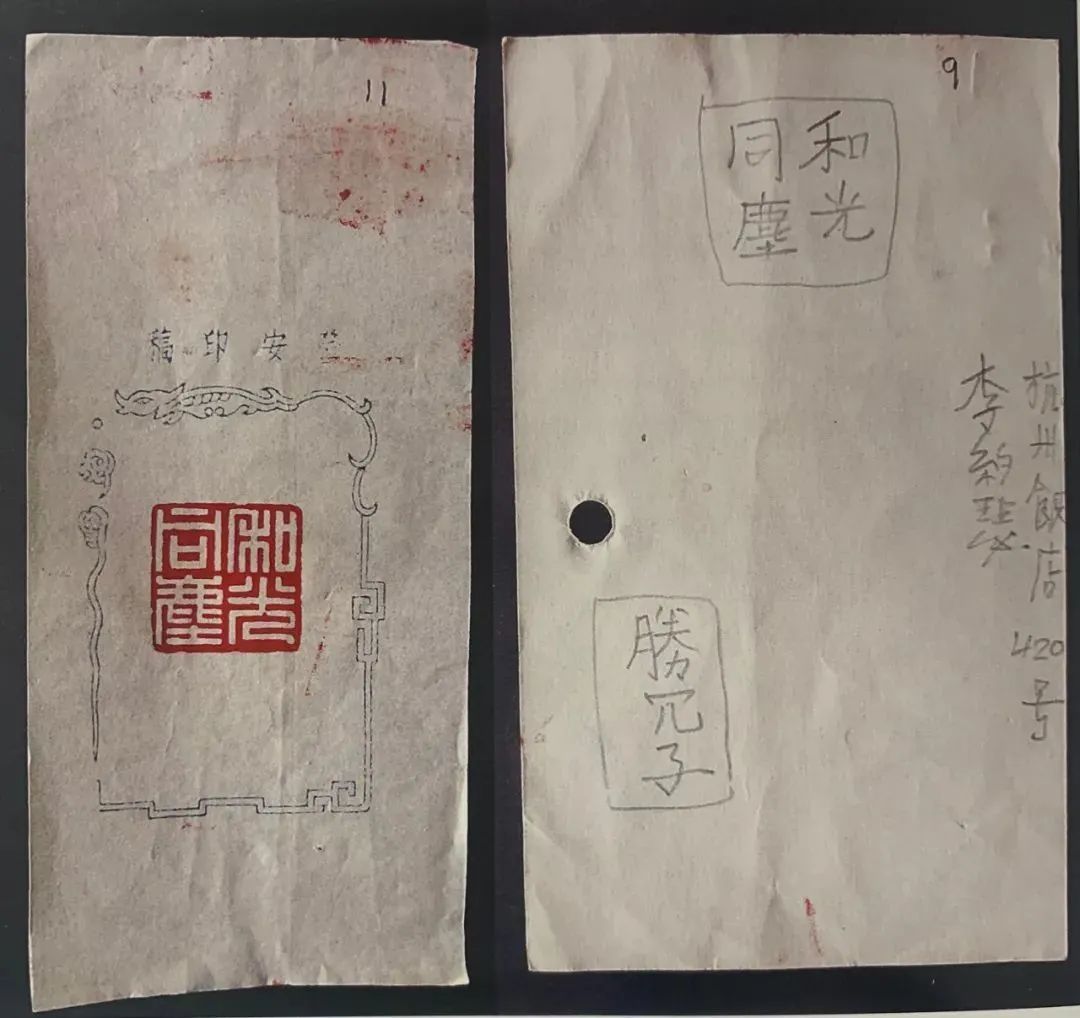 11
安印稿
和光
同塵
9
和光
同塵
杭州飯店 420号
李約瑟
勝冗子